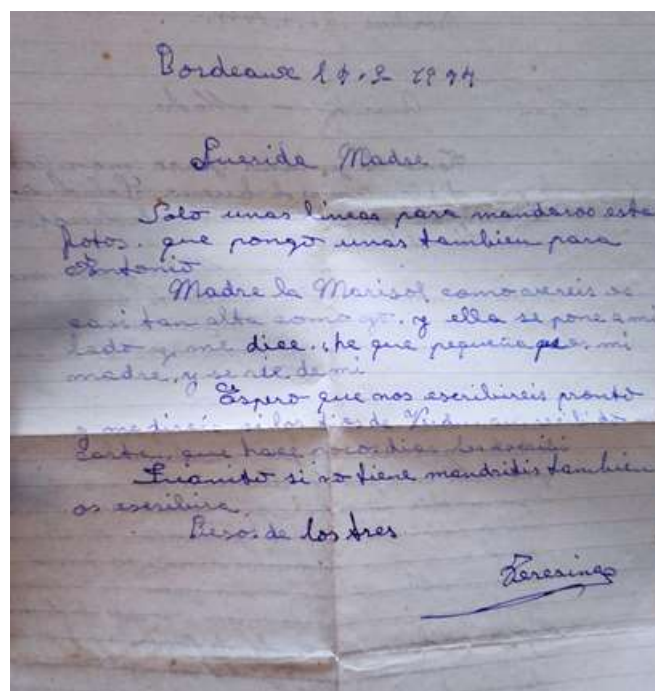 Bordeaux 1
Querida Madre
Solo unas lineas para mandaros esta
fotos. que pongo unas tambien para
Antonio
Madre la Marisol como vereis es
casi tan alta como yo. y ella se pone a mi
lado y me dice. he que pequeña es mi
madre, y se rie de mi
Espero que nos escribireis pronto
y me direis si los tios de
carta, que hace pocos dias les escribi
Juanito si no tiene mandritis tambien
os escribira.
Besos de los tres
Teresina